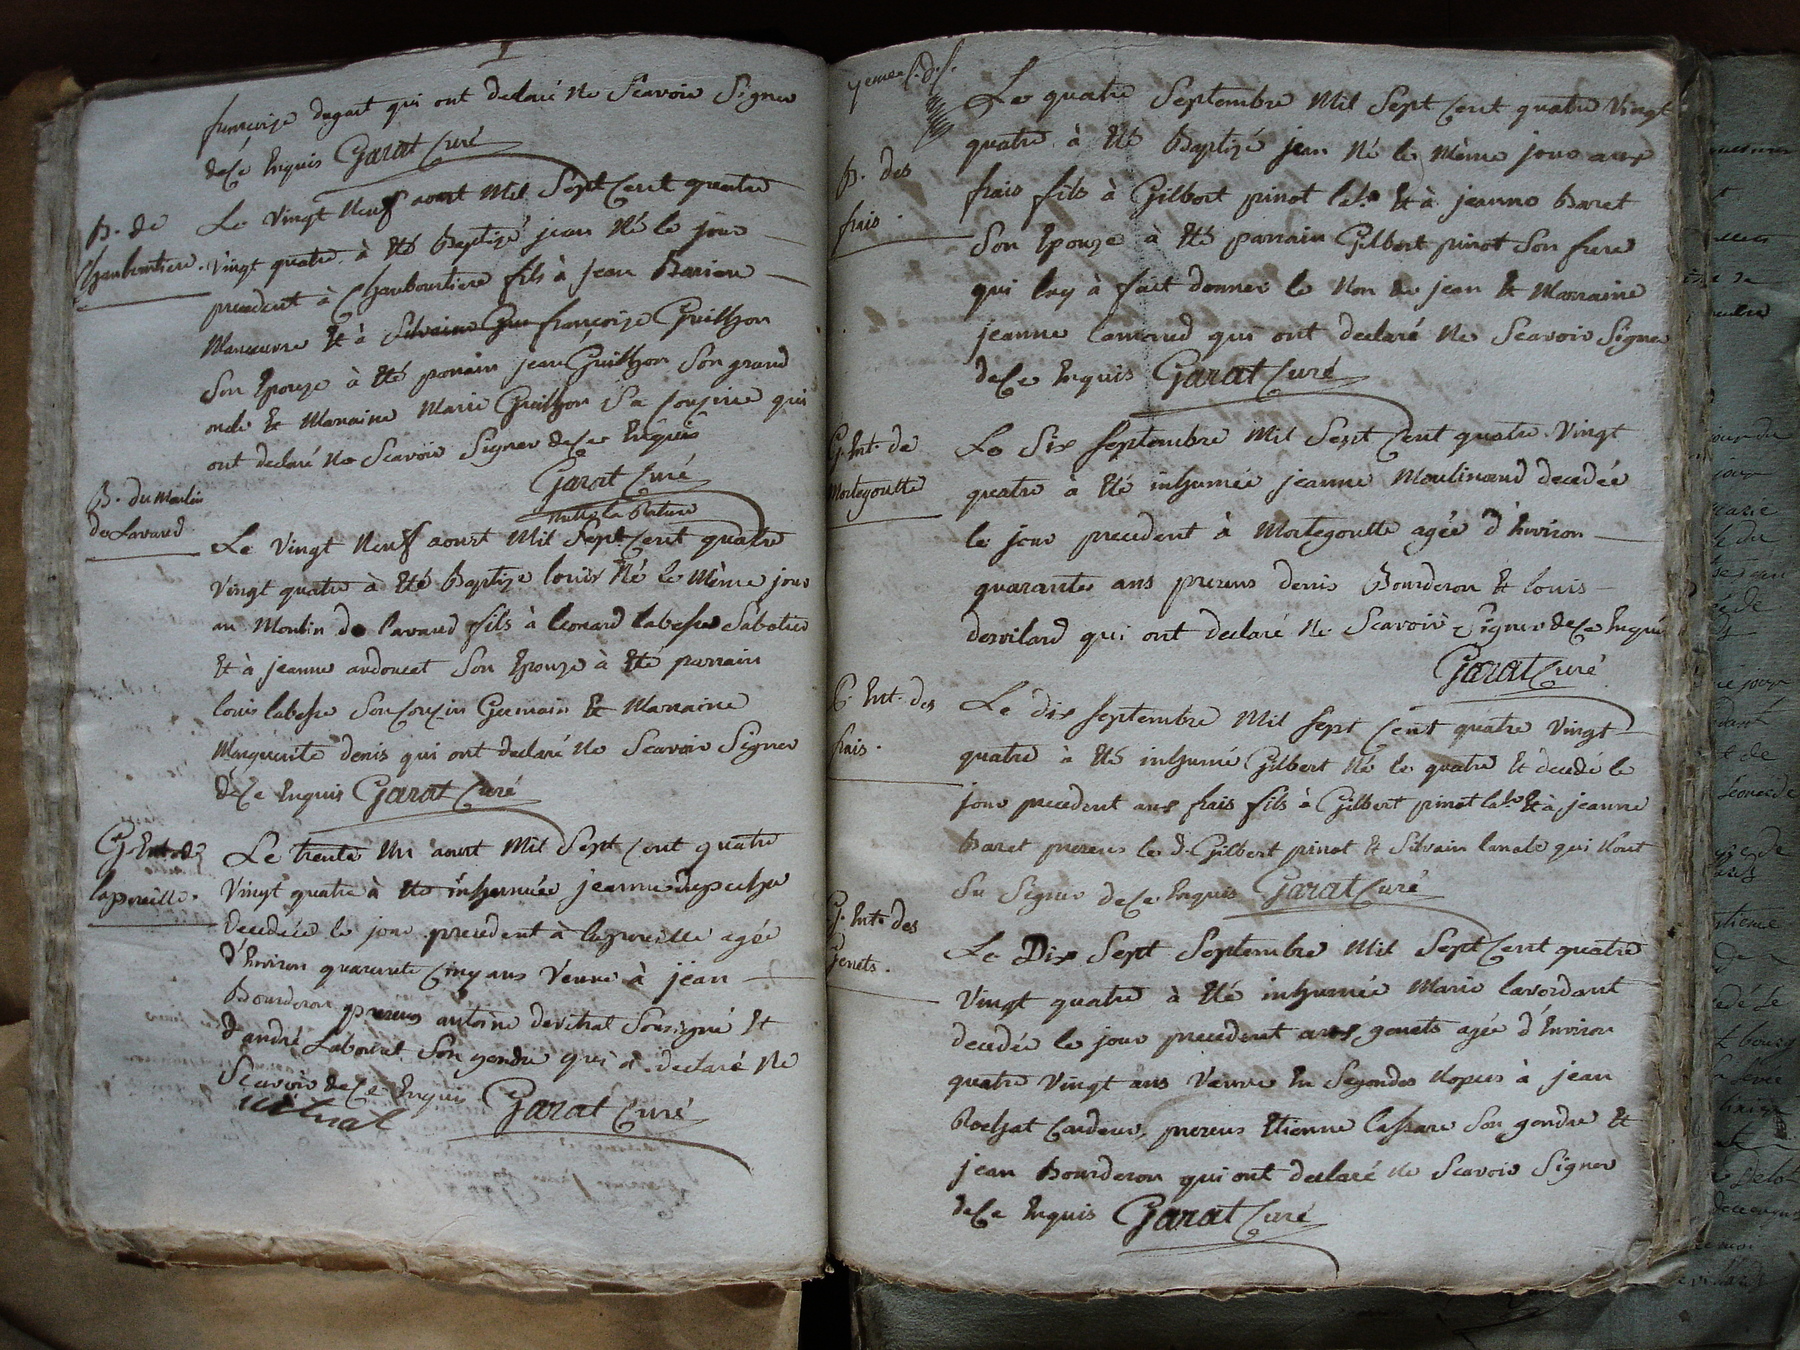 françoise dugast qui ont declaré Ne Scavoir Signer
de Ce Enquis Garat Curé
B. de
Chanboutiere.
Le vingt Neuf aoust Mil Sept Cent quatre
vingt quatre à Eté Baptizé jean Né le jour
precedent à Chanboutiere fils à jean
Maneuvre Et à françoize Guilhon
Son Epouze à Eté parrain jean Guilhon Son grand
oncle Et Marraine Marie Guilhon Sa Couzine qui
ont declaré Ne Scavoir Signer de Ce Enquis
Garat Curé
B. du Moulin
de Lavaud
Le Vingt Neuf aoust Mil Sept Cent quatre
Vingt quatre à Eté Baptize louis Né le Même jour
au Moulin de lavaud fils à leonard labesse Sabotier
Et à jeanne audoucet Son Epouze à Eté parrain
louis labesse Son Couzin Germain Et Marraine
Marguerite denis qui ont declaré Ne Scavoir Signer
de Ce Enquis Garat Curé
G. Ent. de
Le trente Un aoust Mil Sept Cent quatre
Vingt quatre à Eté inhumée jeanne
decedée le jour precedent à agée
d'Environ quarente Cinq ans Veuve à jean
Bourderon prezens antoine devilnat Sousigné Et
d'andré Labouret Son gendre qui à declaré Ne
Scavoir de Ce Enquis Garat Curé
vilnat
B. des
frais.
Le quatre Septembre Mil Sept Cent quatre Vingt
quatre à Eté Baptizé jean Né le Même jour aux
frais fils à Gilbert pinot Et à jeanne Baret
Son Epouze à Eté parrain Gilbert pinot Son frere
qui luy à fait donner le Non de jean Et Marraine
jeanne qui ont declaré Ne Scavoir Signer
de Ce Enquis Garat Curé
G. Ent. de
Mortegoutte
Le Six Septembre Mil Sept Cent quatre Vingt
quatre à Eté inhumée jeanne Moulinaud decedée
le jour precedent à Mortegoutte agée d'Environ
quarantes ans prezens denis Bourderon Et louis
qui ont declaré Ne Scavoir Signer de Ce Enquis
Garat Curé
G. Ent. des
frais.
Le dix Septembre Mil Sept Cent quatre Vingt
quatre à Eté inhumé Gilbert Né le quatre Et decedé le
jour precedent aux frais fils à Gilbert pinot Et à jeanne
Baret prezens le d. Gilbert pinot Et Silvain qui Nont
Su Signer de Ce Enquis Garat Curé
G. Ent. des
Genets.
Le Dix Sept Septembre Mil Sept Cent quatre
Vingt quatre à Eté inhumée Marie lavordant
decedée le jour precedent aux genets agée d'Environ
quatre Vingt ans Veuve En Segondes Nopces à jean
Rochat Cardeur, prezens Etienne Son gendre Et
jean Bourderon qui ont declaré Ne Scavoir Signer
de Ce Enquis Garat Curé